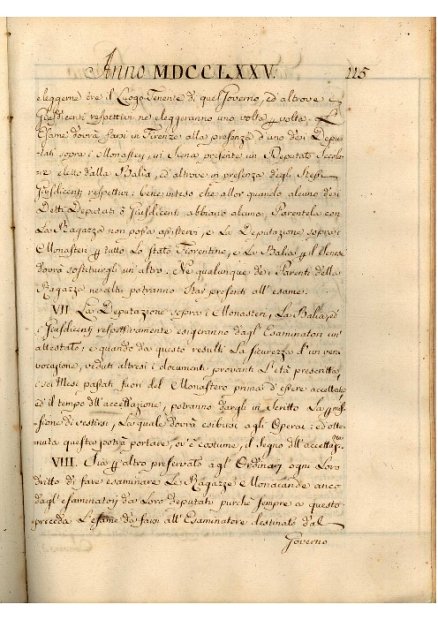 Anno MDCCLXXV. 115
eleggerne tre il Luogo-Tenente di quel Governo, ed altrove i
Giusdicenti respettivi ne eleggeranno uno volta per volta. L'
Esame dovrà farsi in Firenze alla presenza d'uno dei Depu-
tati sopra i Monasteri, in Siena presente un Deputato Secola-
re eletto dalla Balìa, ed altrove in presenza degli Stessi
Giusdicenti respettivi: bene inteso che allor quando alcuno dei
Detti Deputati o Giusdicenti abbiano alcuna Parentela con
La Ragazza non possa assistervi, e La Deputazione sopra i
Monasteri per tutto Lo Stato Fiorentino, e La Balìa per il Senese
dovrà sostituirgli un'altro. Ne qualunque dei Parenti della
Ragazza ned altri potranno Star presenti all'esame.
VII. La Deputazione sopra i Monasteri, La Balìa, e
i Giusdicenti respettivamente esigeranno dagl'Esaminatori un'
attestato; e quando da questo resulti La sicurezza d'un vera
vocazione, veduti altresì i documenti provanti L'età prescritta,
i sei Mesi passati fuori del Monastero prima d'essere accettata,
ed il tempo dell'accettazione, potranno dargli in Scritto La permis-
sione di vestirsi, La quale dovrà esibirsi agli Operai; ed otte-
nuta questa potrà portare, ov'è costume, il segno dell'accettazne.
VIII. Sia per altro preservato agl'Ordinarj ogni Loro
diritto di fare esaminare Le Ragazze Monacande anco
dagl'esaminatori da Loro deputati purchè sempre a questo
preceda L'esame da farsi all'Esaminatore destinato dal
Governo